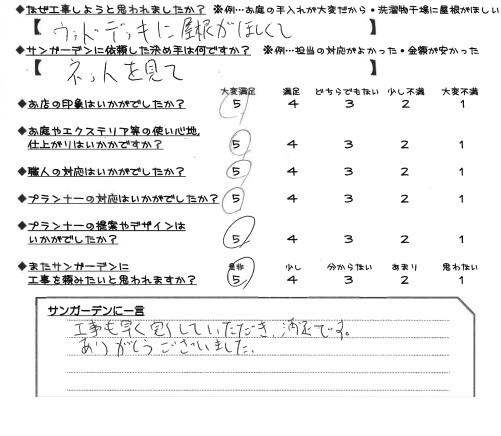 ◆なぜ工事しようと思われましたか? ※例…お庭の手入れが大変だから・洗濯物干場に屋根がほしい
【 ウッドデッキに屋根がほしくて 】
◆サンガーデンに依頼した決め手は何ですか? ※例…担当の対応がよかった・金額が安かった
【 ネットを見て 】
大変満足 満足 どちらでもない 少し不満 大変不満
◆お店の印象はいかがでしたか? 5 4 3 2 1
◆お庭やエクステリア等の使い心地、
仕上がりはいかかですか? 5 4 3 2 1
◆職人の対応はいかがでしたか? 5 4 3 2 1
◆プランナーの対応はいかがでしたか? 5 4 3 2 1
◆プランナーの提案やデザインは
いかがでしたか? 5 4 3 2 1
是非 少し 分からない あまり 思わない
◆またサンガーデンに
工事を頼みたいと思われますか? 5 4 3 2 1
サンガーデンに一言
工事も早く完了していただき、満足です。
ありがとうございました。